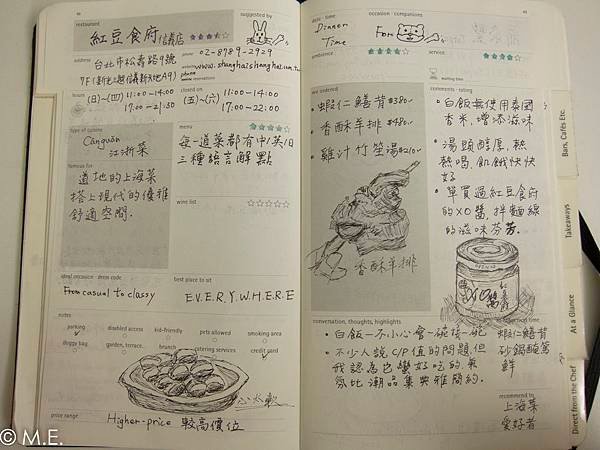 48
restaurant
suggested by
紅豆食府 信義店
address
台北市松壽路9號
7F (新光三越信義新天地A9)
phone 02-8789-2929
website www.shanghaishanghai.com.tw
phone
reservations
hours
(日)~(四) 11:00-14:00
17:00-21:30
closed on
(五)~(六) 11:00-14:00
17:00-22:00
type of cuisine
Cānguǎn
江浙菜
famous for
道地的上海菜
搭上現代的優雅
舒適空間.
menu
每一道菜都有中/英/日
三種語言解點
wine list
ideal occasion · dress code
From casual to classy
best place to sit
E.V.E.R.Y.W.H.E.R.E
notes
parking
disabled access
kid-friendly
pets allowed
smoking area
doggy bag
garden, terrace,
brunch
catering services
credit card
小籠包
price range
Higher-price 較高價位
49
date · time
Dinner
Time
occasion · companions
For
ambience
service
waiting time
we ordered
• 蝦仁鱔背 $380
• 香酥羊排 $480
• 雞汁竹笙湯 $210
香酥羊排
comments · rating
• 白飯是使用泰國
香米,增添滋味
• 湯頭醇厚,熱
熱喝,飢餓快快
好
• 單買過紅豆食府
的XO醬,拌麵線
的滋味芬芳.
XO醬
conversation, thoughts, highlights
• 白飯一不小心會一碗接一碗
• 不少人說C/P值的問題,但
我認為也蠻好吃的.氣
氛比潮品集典雅簡約.
next time
蝦仁鱔背
砂鍋醃篤
鮮
recommend to
上海菜
愛好者
Bars, Cafés Etc.
Takeaways
At a Glance
Direct from the Chef
© M.E.